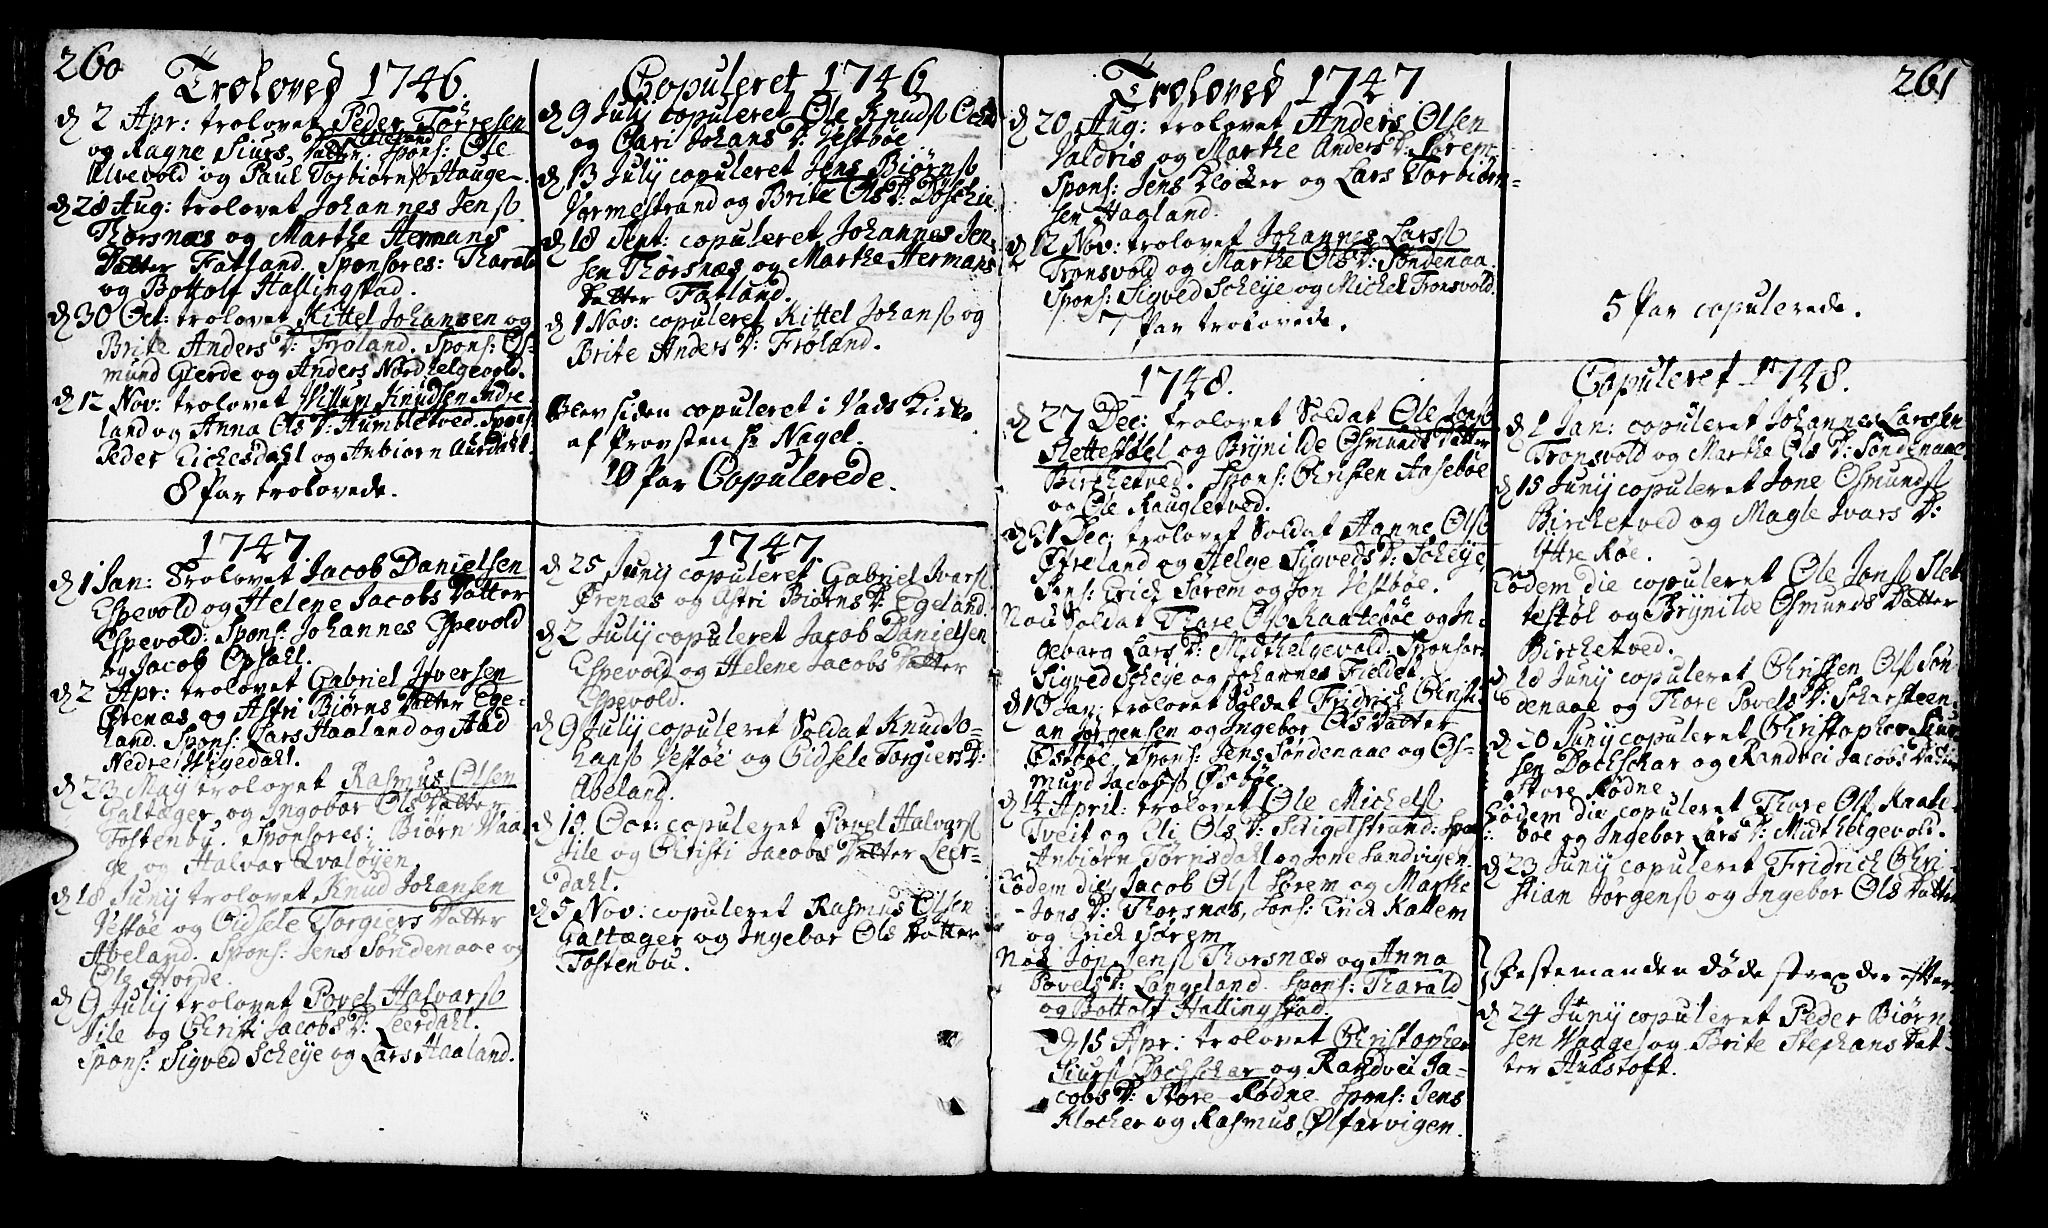 260
Troloved 1746.
d 2 Apr: trolovet Peder Torresen
og Ragne Siurs Datter Spons: Ole
Alvevold og Paul Tosbiørnss Hauge.
d 28 Aug: trolovet Johannes Jenss
Thorsnæs og Marthe Hermans
Datter Fatland. Sponsores: Tharald
og Bottolf Hallingstad.
d 30 Oct: trolovet Kittel Johansen og
Brite Anders D: Frøland. Spons: Os-
mund Gierde og Anders Nordhelgevold.
d 12 Nov: trolovet Villum Knudsen Indre-
land og Anna Ols D: Humbletved. Spons:
Peder Eichesdahl og Anbiørn Aurdahl.
8 Par trolovede.
1747
d 1 Jan: Trolovet Jacob Danielsen
Espevold og Helene Jacobs Datter
Espevold: Spons: Johannes Espevold
og Jacob Opsahl.
d 2 Apr: trolovet Gabriel Iversen
Ørenæs og Astri Biørns Datter Ege-
land. Spons: Lars Haaland og Aad
Nedre Vigedahl.
d 23 May trolovet Rasmus Olsen
Galtæger og Ingebor Ols Datter
Tostenbu. Sponsores: Biørn Vaa-
ge og Halvar Qvaløyen.
d 18 Junij trolovet Knud Johansen
Vestøe og Gidsele Torgiers Datter
Abeland. Spons: Jens Søndenaae og
Ole Horde.
d 9 Julij trolovet Povel Halvarss
Iile og Christi Jacobs D: Leerdahl.
Spons: Sigved Scheije og Lars Haaland.
Copuleret 1746
d 9 Julij copuleret Ole Knudss
og Mari Johans D: Vestbøe
d 13 Julij copuleret Jens Biørnss
Vormestrand og Brite Ols D: Døschie.
d 18 Sept: copuleret Johannes Jen-
sen Thorsnæs og Marthe Hermans
Datter Fatland.
d 1 Nov: copuleret Kittel Johanss og
Brite Anders D: Frøland.
Blev siden copuleret i Vads Kirke
af Provsten Hr Nagel.
10 Par Copulerede.
1747
d 25 Junij copuleret Gabriel Ivarss
Ørenæs og Astri Biørns D: Egeland.
d 2 Julij copuleret Jacob Danielsen
Espevold og Helene Jacobs Datter
Espevold.
d 9 Julij copuleret Soldat Knud Jo-
hanss Vestøe og Gidsele Torgiers D:
Abeland.
d 19 Oct: copuleret Povel Halvarss
Iile og Christi Jacobs Datter Leer-
dahl.
d 5 Nov: copuleret Rasmus Olsen
Galtæger og Ingebor Ols Datter
Tostenbu.
Troloved 1747
d 20 Aug: trolovet Anders Olsen
Valdris og Marthe Anders D: Sørem
Spons: Jens Klocker og Lars Torbiørn-
sen Hagland.
d 12 Nov: trolovet Johannes Larss
Tronsvold og Marthe Ols D: Søndenaa.
Spons: Sigved Scheije og Michel Tronsvold.
7 Par trolovede.
1748.
d 27 Dec: trolovet Soldat Ole Jonss
Slettestøel og Brynilde Osmunds Datter
Birchetved. Spons: Christen Aasebøe
og Ole Raugletved.
d 31 Dec: trolovet Soldat Hanne Olss
Øfreland og Helge Sigveds D: Scheije
Spons: Erick Sørem og Jon Vestbøe.
Nok Soldat Thore Olss Raatebøe og In-
geborg Lars D: Midthelgevold. Sponsor:
Sigved Scheije og Johannes Fieldet
d 10 Jan: trolovet Soldat Fridrich Christi-
an Jørgensen og Ingebor Ols Datter
Østbøe. Spons: Jens Søndenaae og Os-
mund Jacobss Østbøe.
d 14 April: trolovet Ole Michelss
Tveit og Eli Ols D: Stigelstrand: Spons
Anbiørn Tørnsdahl og Jone Sandvigen.
Eodem die, Jacob Olss Sørem og Marthe
Jons D: Thorsnæs, Spons: Erick Kallem
og Erick Sørem
Nok Jon Jenss Thorsnæs og Anna
Povels D: Langeland. Spons: Tharald
og Bottolf Hallingstad.
d 15 Apr: trolovet Christopher
Siurss Dochschar og Randvei Ja-
cobs D: Store Rødne. Spons: Jens
Klocker og Rasmus Ølfarvigen.
261
5 Par copulerede.
Copuleret 1748.
d 2 Jan: copuleret Johannes Larssen
Tronsvold og Marthe Ols D: Søndenaae
d 15 Junij copuleret Jone Osmundss
Birchetved og Magle Ivars D:
Yttre Røe.
Eodem die copuleret Ole Jonss Slet-
testøl og Brynilde Osmunds Datter
Birchetved.
d 18 Junij copuleret Christen Olss Søn-
denaae og Thore Povels D: Scharsteen.
d 20 Junij copuleret Christopher Siur-
sen Dochschar og Randvei Jacobs Datter
Store Rødne
Eodem die copuleret Thore Olss Raate-
bøe og Ingebor Lars D: Midthelgevold.
d 23 Junij copuleret Fridrich Chri-
stian Jørgenss og Ingebor Ols Datter
Festemanden døde strax der efter.
d 24 Junij copuleret Peder Biørn-
sen Vaage og Brite Stephans Dat-
ter Huastoft.